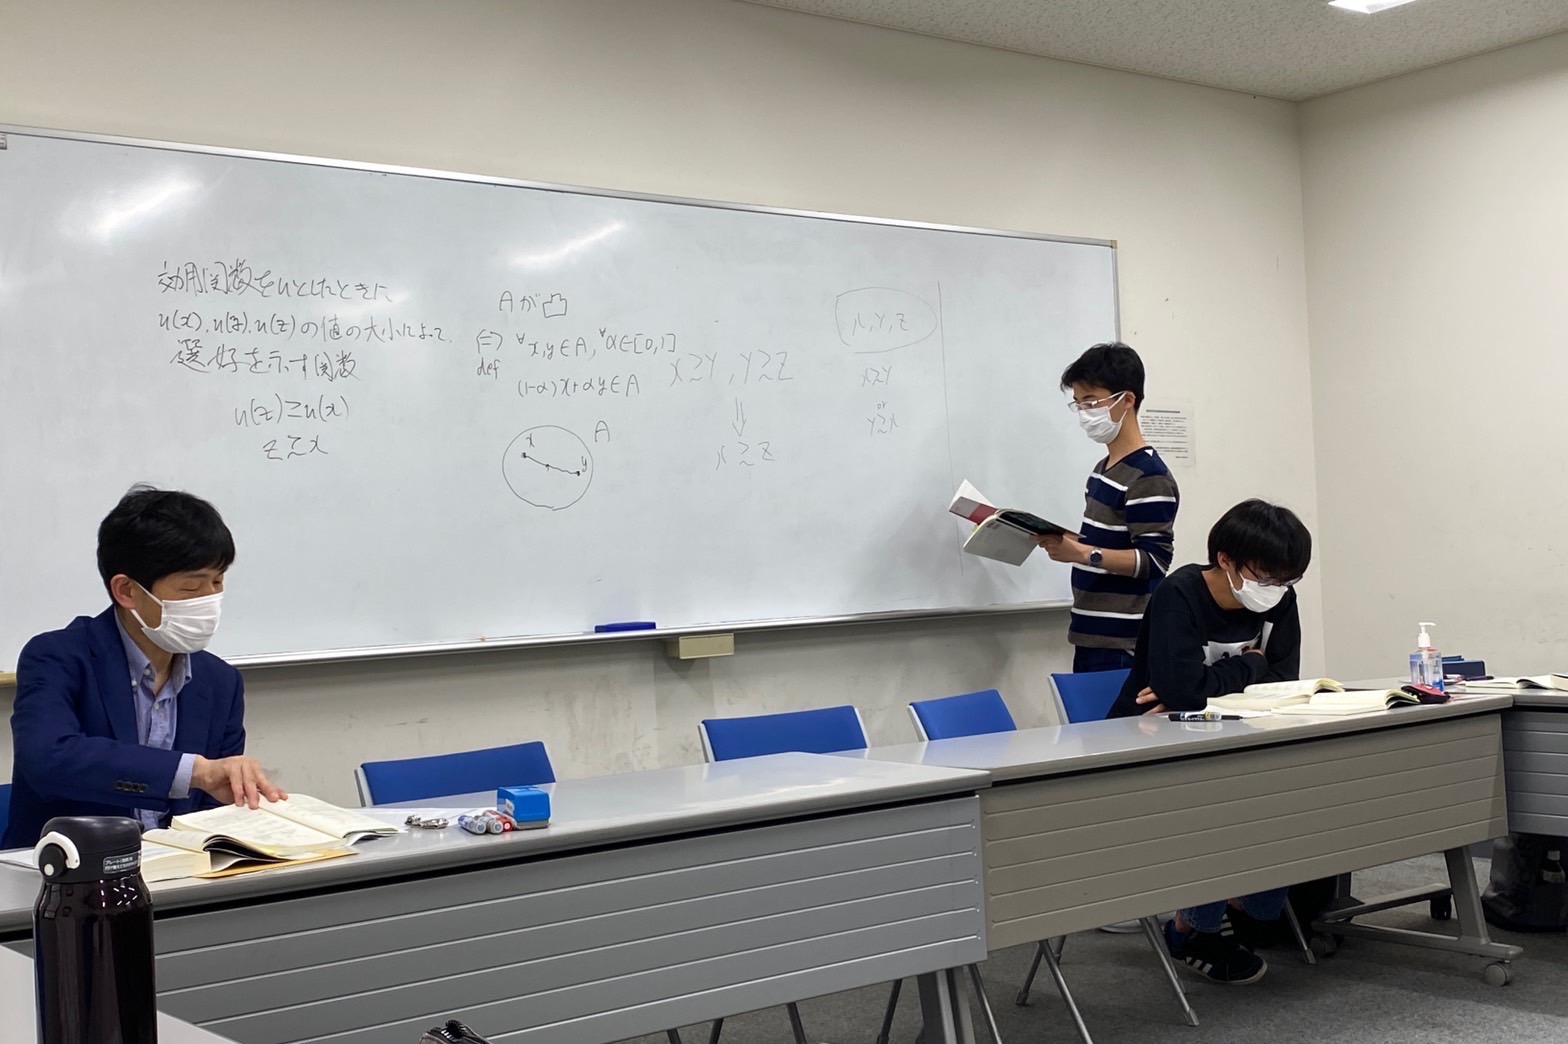 効用関数をuとしたときに
u(x), u(y), u(z)の値の大小によって、
選好を示す関数
u(z)≥u(x)
z≿x
Aが凸
⇔ ∀x,y∈A, ∀α∈[0,1]
def
(1-α)x+αy∈A
A
x
y
x≿y, y≿z
⇓
x≿z
x, y, z
x≿y
or
y≿x